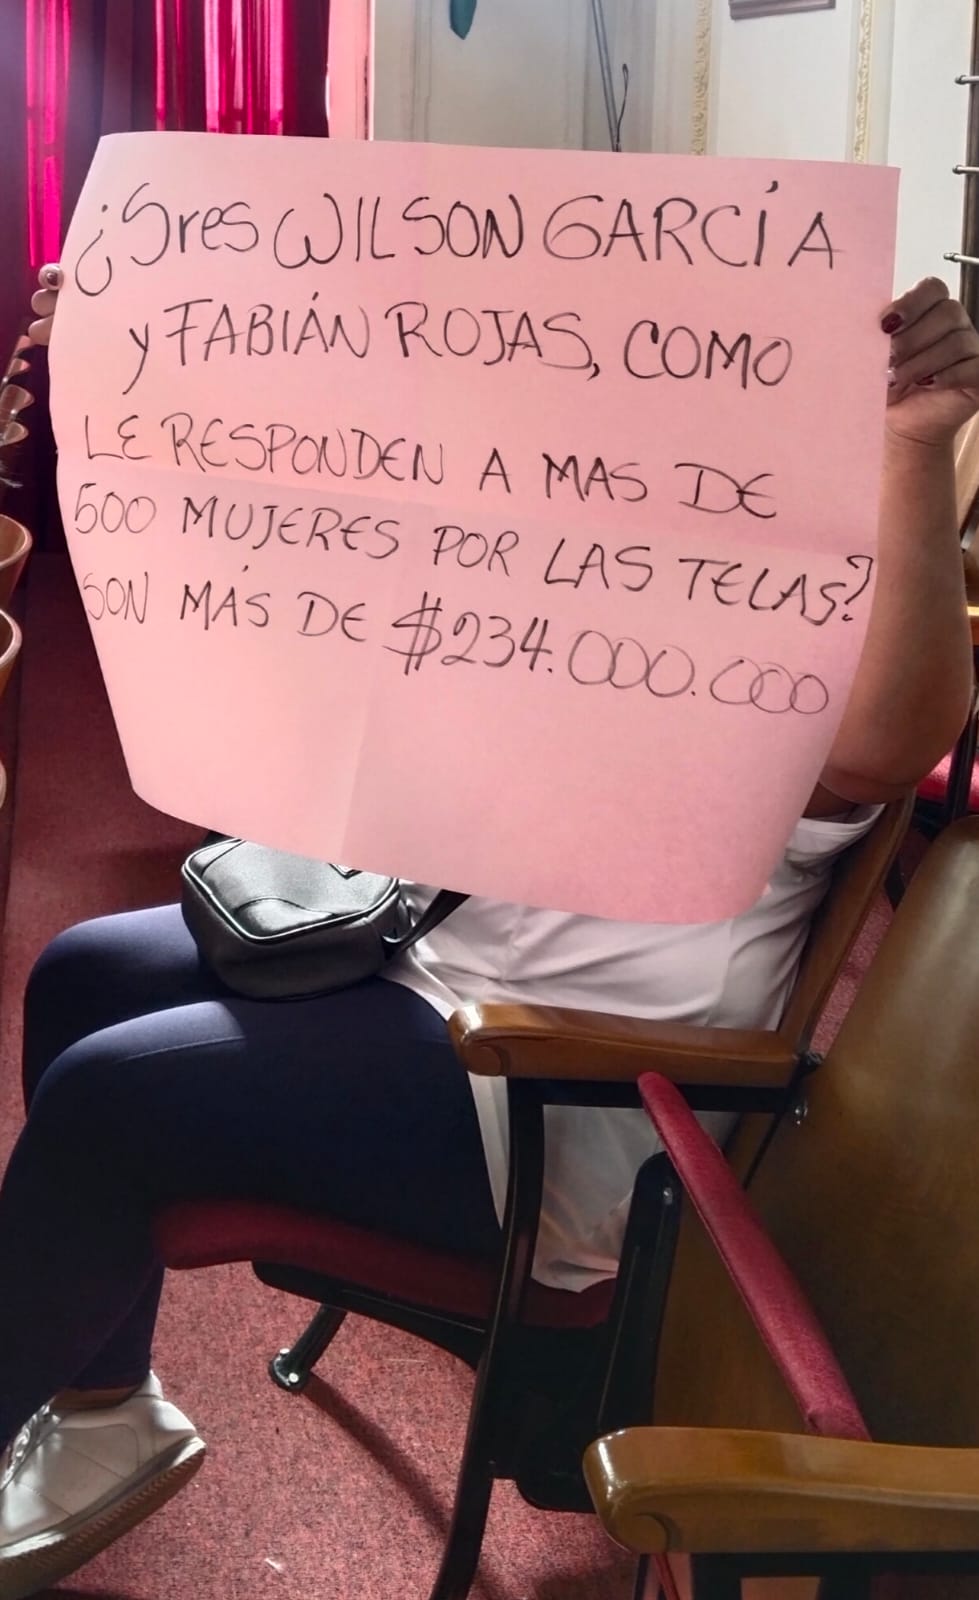 ¿Sres WILSON GARCÍA
y FABIÁN ROJAS, COMO
LE RESPONDEN A MAS DE
500 MUJERES POR LAS TELAS?
SON MÁS DE $234.000.000